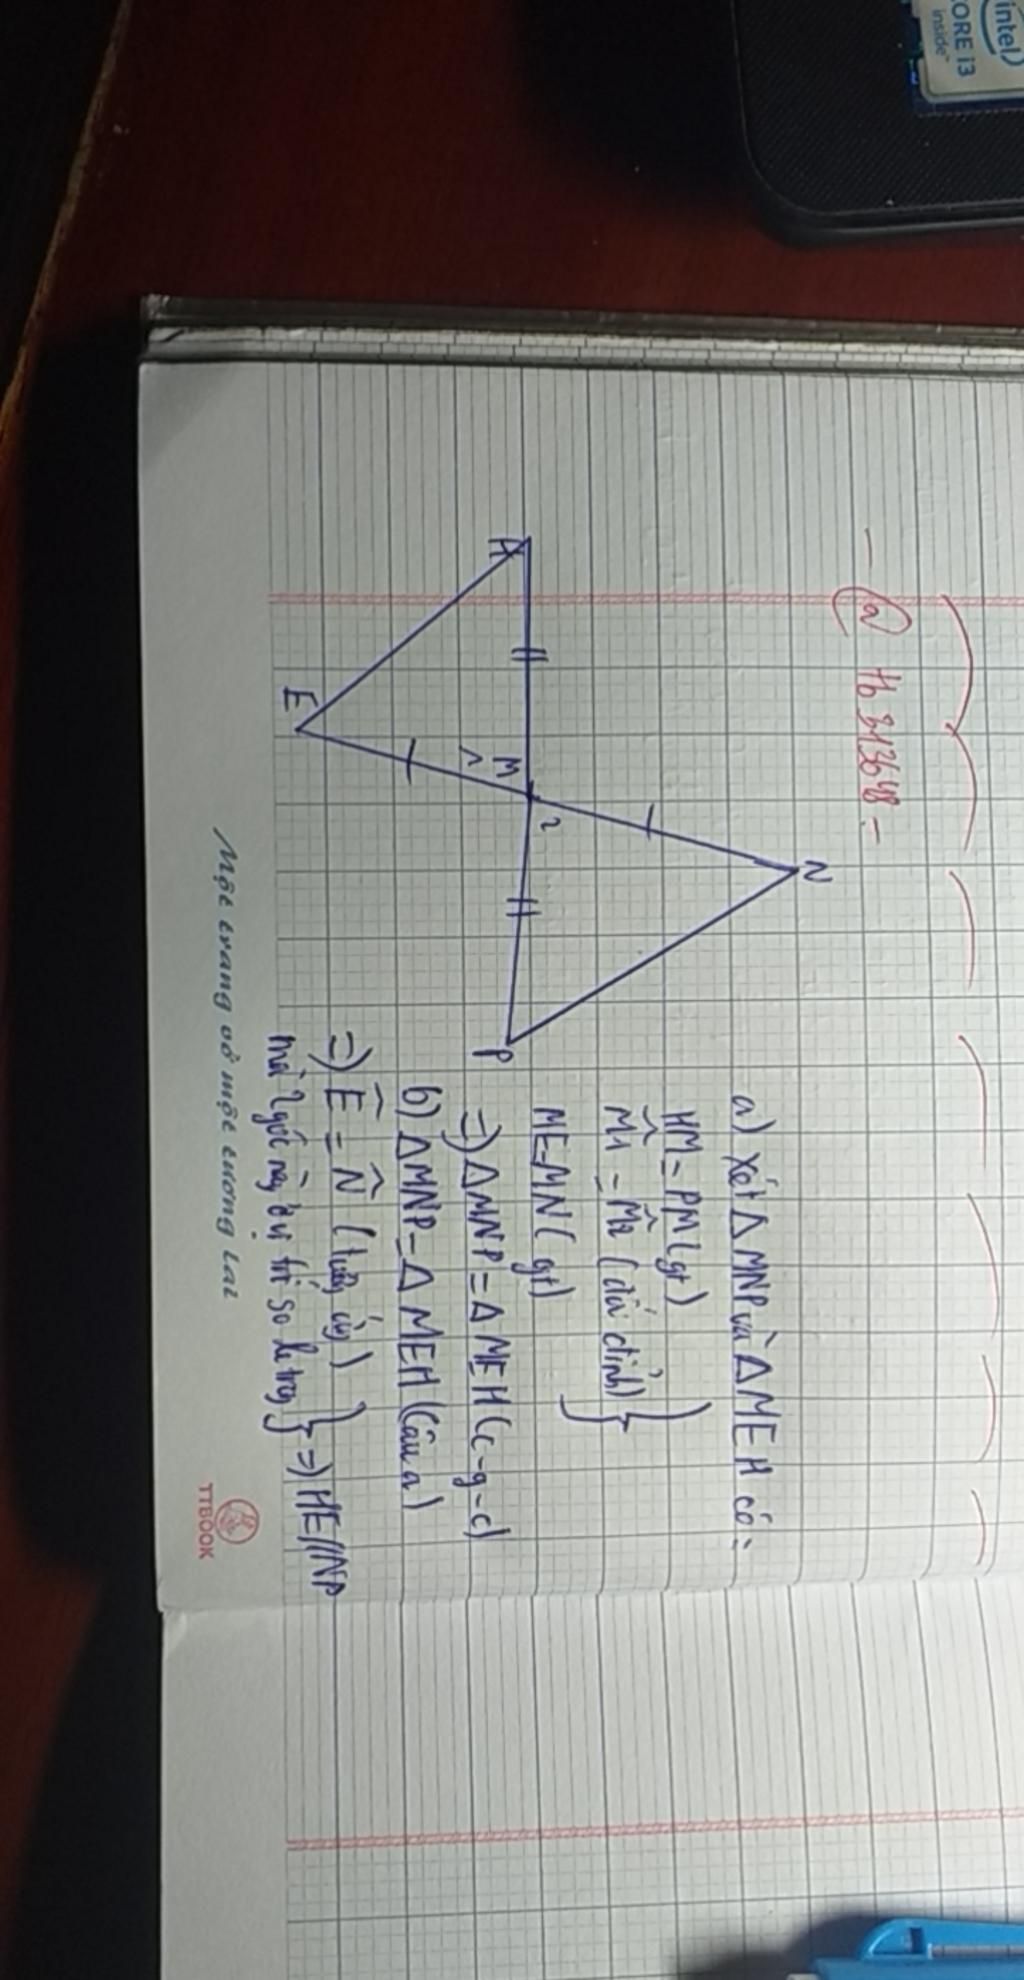 intel
CORE i3
inside
@ Hb 313648
N
2
M
1
H
P
E
a) Xét Δ MNP và Δ MEH có:
HM = PM (gt)
M̂1 = M̂2 (đối đỉnh)
ME = MN (gt)
=) Δ MNP = Δ MEH (c-g-c)
b) Δ MNP = Δ MEH (Câu a)
=) Ê = N̂ (tương ứng)
mà 2 góc này ở vị trí so le trong
=) HE // NP
Một trang vở một tương lai
TTBOOK